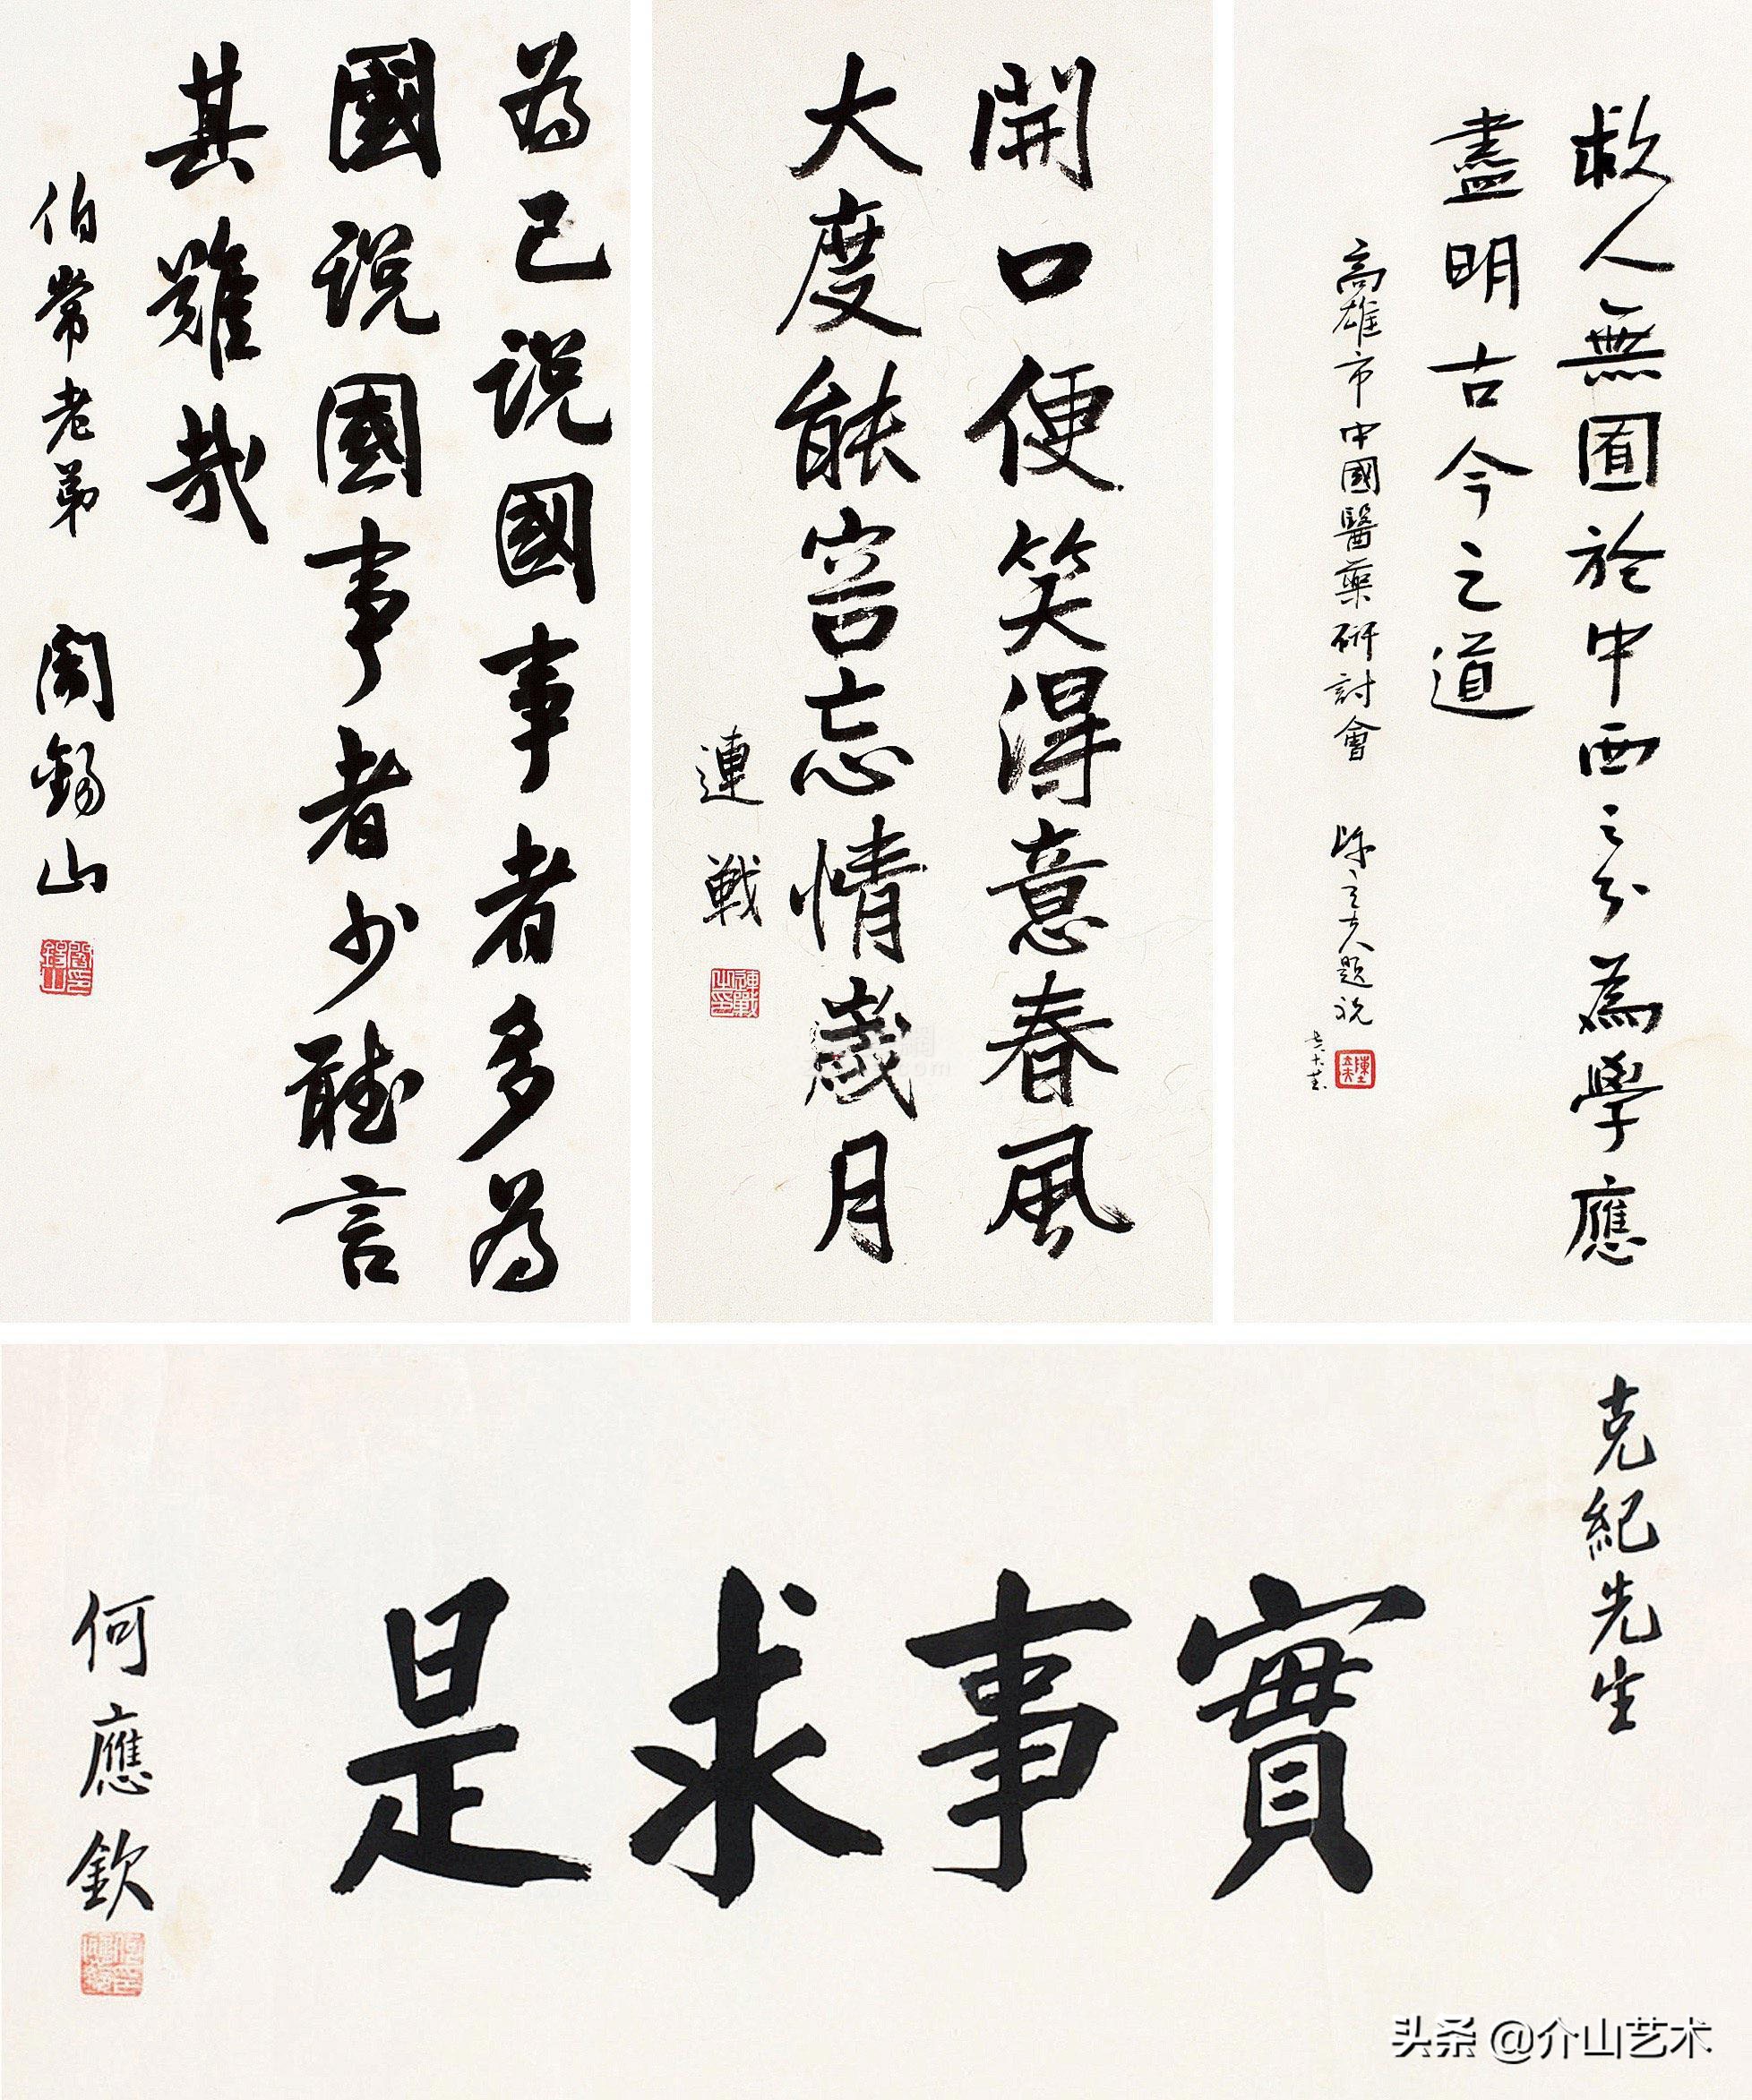 為己説國事者多為
國説國事者少聽言
其難哉
伯常老弟 閻錫山
閻錫山印
開口便笑得意春風
大度能容忘情歲月
連戰
連戰之印
救人無囿於中西之分為學應
盡明古今之道
高雄市中國醫藥研討會 陳立夫題祝
陳立夫
克紀先生
實事求是
何應欽
头条 @介山艺术